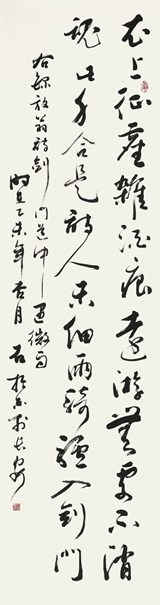 衣上征塵雜酒痕遠遊無處不消
魂此身合是詩人未細雨騎驢入劍門
右錄放翁詩劍門道中遇微雨
乙未年杏月